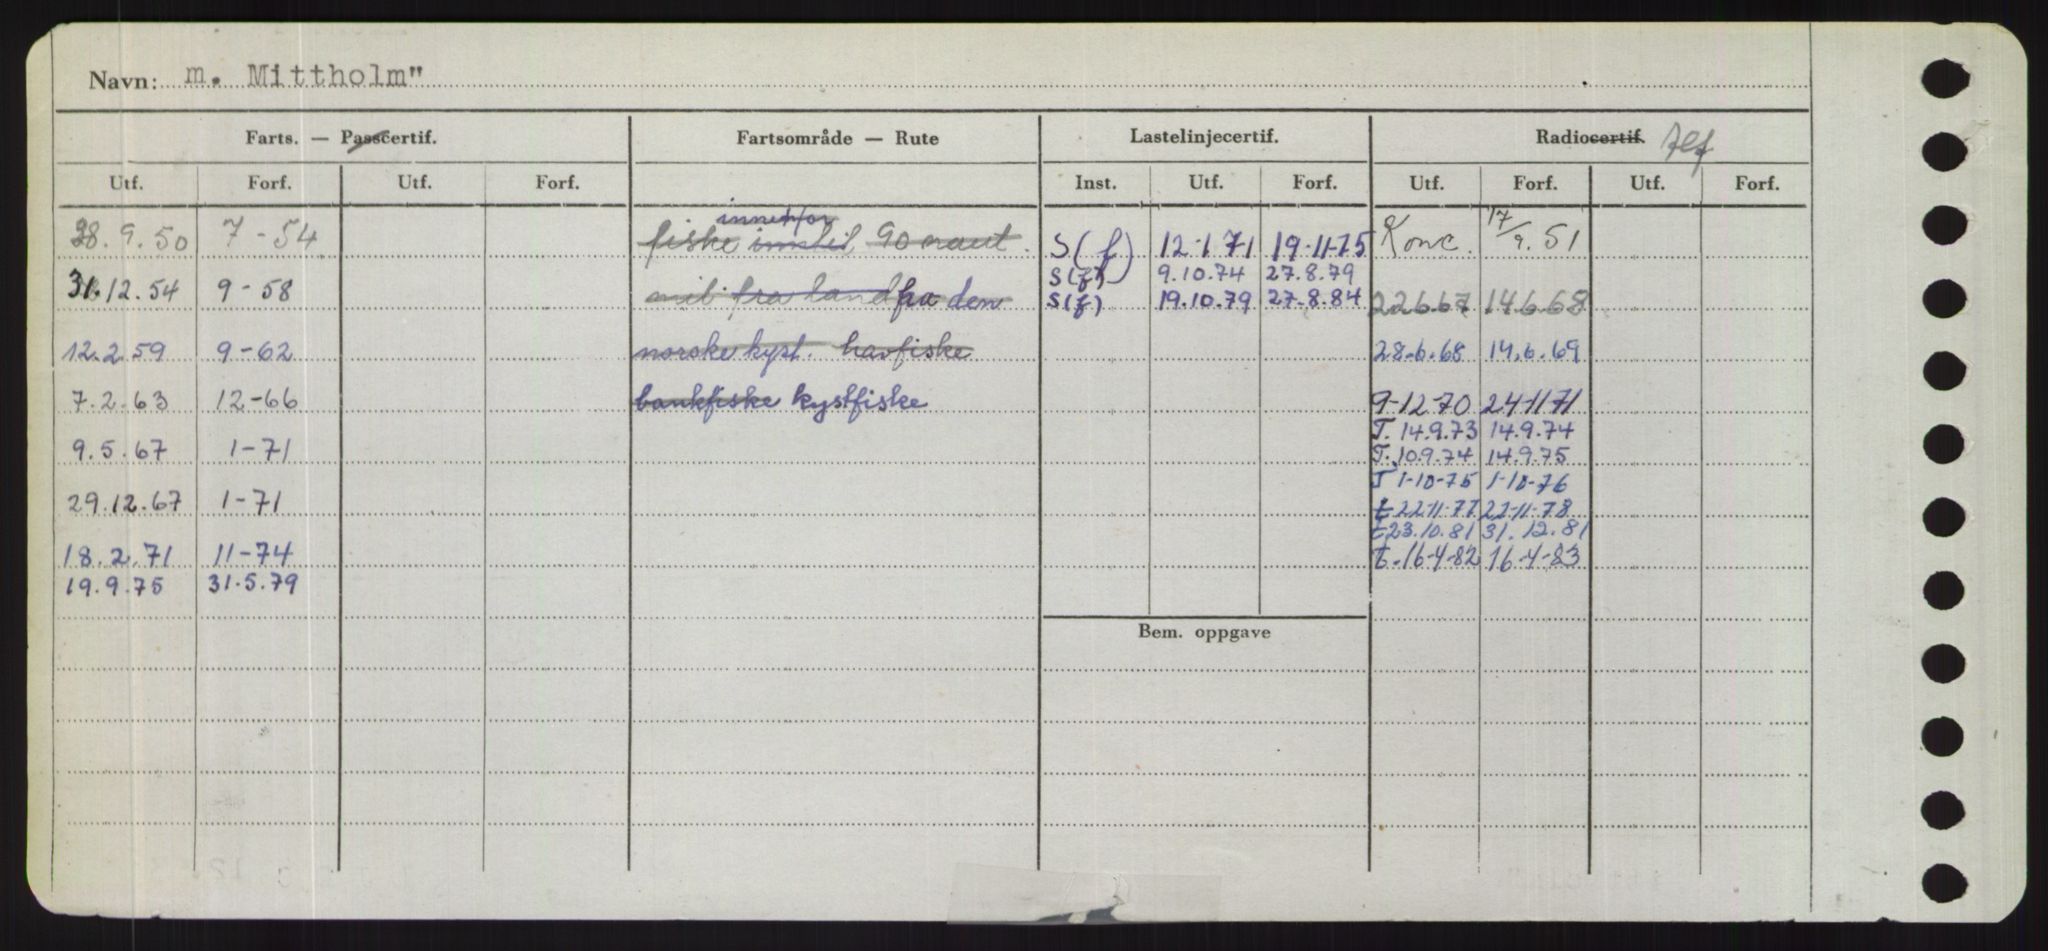 Navn: m. Mittholm"
Farts. — Passcertif. Fartsområde — Rute Lastelinjecertif. Radiocertif. tlf
Utf. Forf. Utf. Forf. Inst. Utf. Forf. Utf. Forf. Utf. Forf.
innenfor
28.9.50 7-54 fiske inntil 90 naut. S(f) 12-1-71 19-11-75 Konc. 17/9.51
S(f) 9.10.74 27.8.79
31.12.54 9-58 mil fra land fra den S(f) 19.10.79 27-8.84 22.6.67 14.6.68
12.2.59 9-62 norske kyst. havfiske 28.6.68 14.6.69
7.2.63 12-66 bankfiske kystfiske 9-12-70 24-11-71
T. 14.9.73 14.9.74
9.5.67 1-71 T. 10.9.74 14.9.75
T 1-10-75 1-10-76
29.12.67 1-71 t 22-11-77 22-11-78
t 23.10.81 31.12.81
18.2.71 11-74 t. 16-4-82 16-4-83
19.9.75 31.5.79
Bem. oppgave